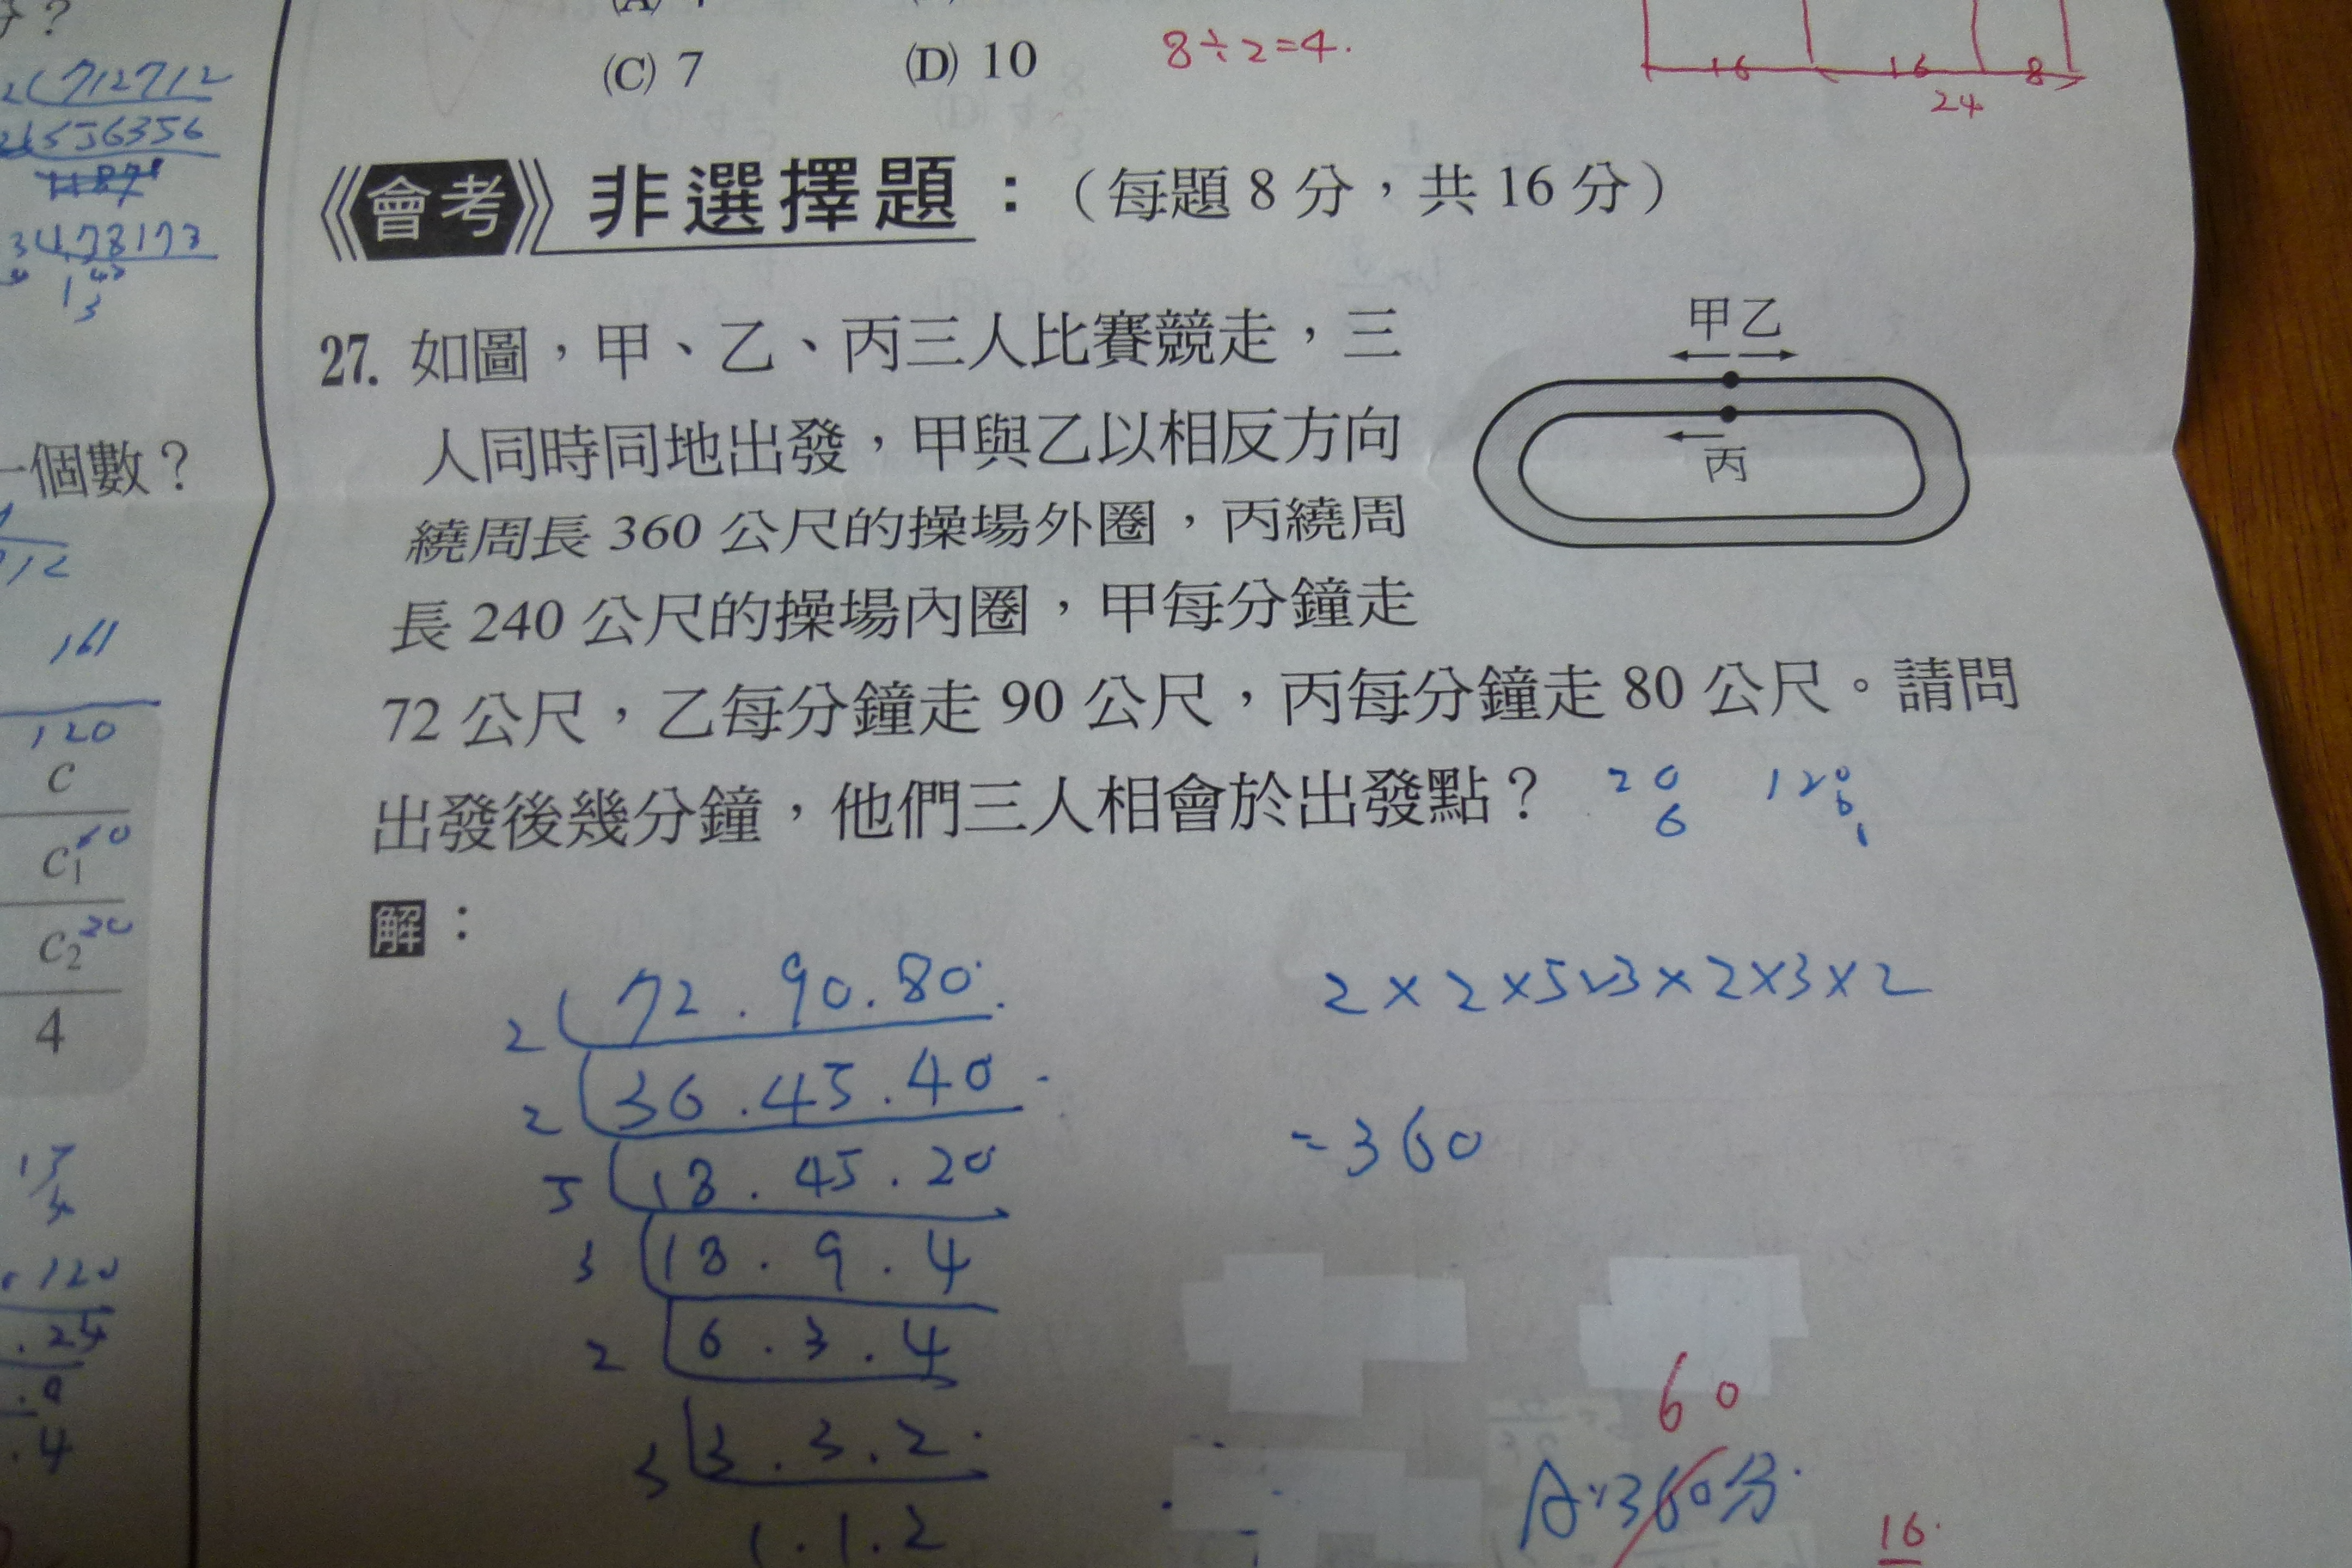 (C) 7 (D) 10 8÷2=4.
16 16 8
24
會考 非選擇題：（每題 8 分，共 16 分）
27. 如圖，甲、乙、丙三人比賽競走，三
人同時同地出發，甲與乙以相反方向
繞周長 360 公尺的操場外圈，丙繞周
長 240 公尺的操場內圈，甲每分鐘走
72 公尺，乙每分鐘走 90 公尺，丙每分鐘走 80 公尺。請問
出發後幾分鐘，他們三人相會於出發點？
甲乙
丙
20 120
6 6
解：
2 72 . 90 . 80
2 36 . 45 . 40
5 18 . 45 . 20
3 18 . 9 . 4
2 6 . 3 . 4
3 3 . 3 . 2
1 . 1 . 2
2×2×5×3×2×3×2
=360
60
A:360分
16
2 712712
356356
一個數？
161
120
c
c₁ 60
c₂ 30
4
120
24
4